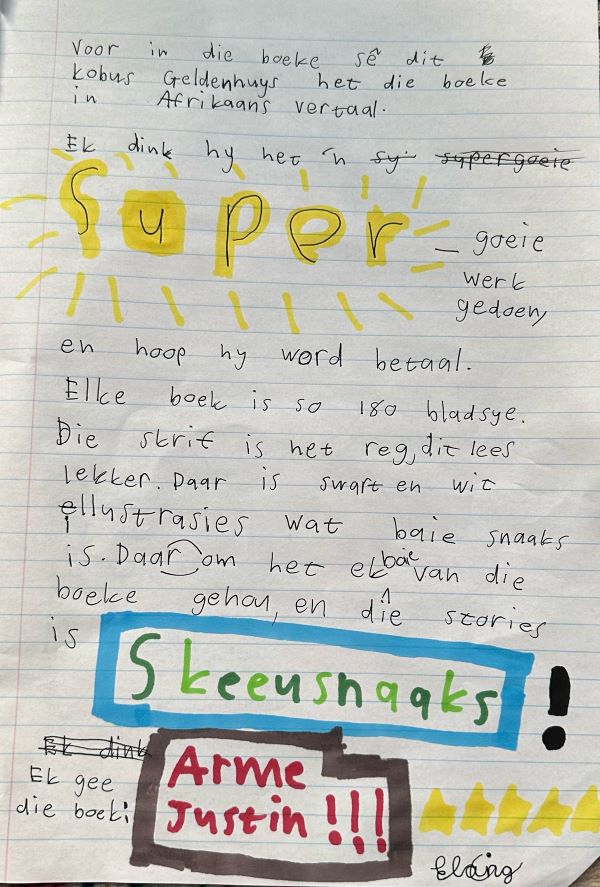 Voor in die boeke sê dit
Kobus Geldenhuys het die boeke
in Afrikaans vertaal.
Ek dink hy het 'n sy supergoeie
Super - goeie
werk
gedoen,
en hoop hy word betaal.
Elke boek is so 180 bladsye.
Die skrif is het reg, dit lees
lekker. Daar is swart en wit
illustrasies wat baie snaaks
is. Daar om het ek baie van die
boeke gehou, en die stories
is
Skeeusnaaks!
Ek dink
Ek gee
die boek:
Arme
Justin!!!